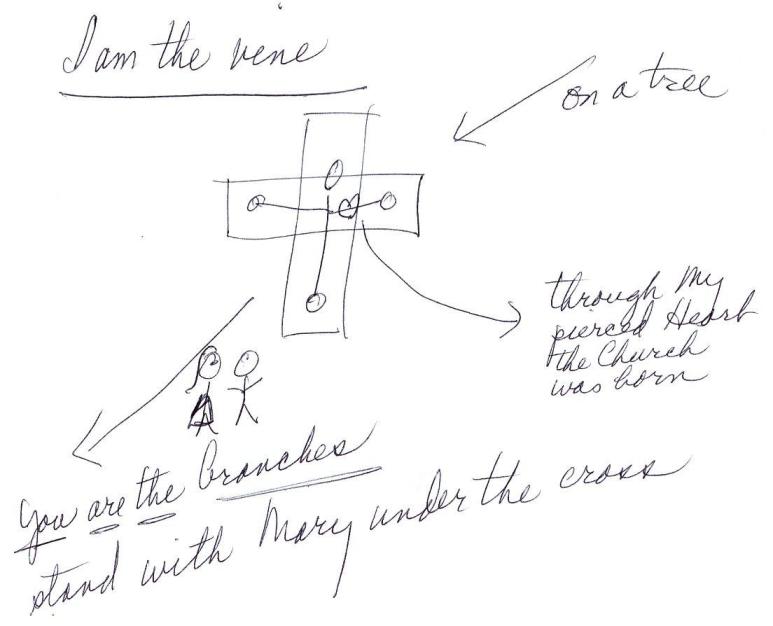 I am the vine
on a tree
through My
pierced Heart
the Church
was born
You are the branches
stand with Mary under the cross